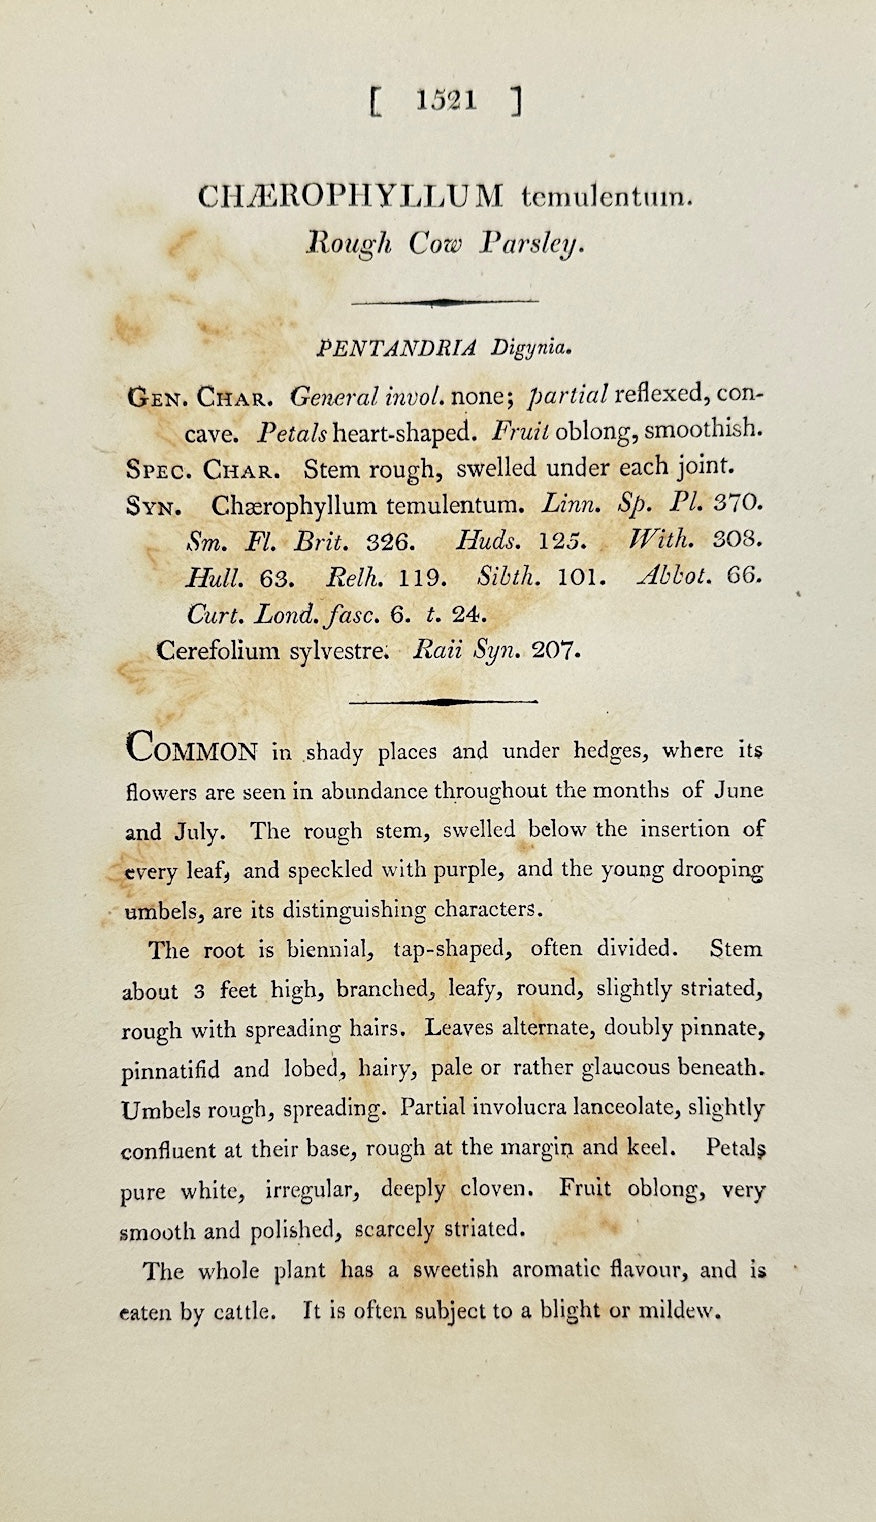 [ 1521 ]
CHÆROPHYLLUM temulentum.
Rough Cow Parsley.
PENTANDRIA Digynia.
GEN. CHAR. General invol. none; partial reflexed, con-
cave. Petals heart-shaped. Fruit oblong, smoothish.
SPEC. CHAR. Stem rough, swelled under each joint.
SYN. Chærophyllum temulentum. Linn. Sp. Pl. 370.
Sm. Fl. Brit. 326. Huds. 125. With. 308.
Hull. 63. Relh. 119. Sibth. 101. Abbot. 66.
Curt. Lond. fasc. 6. t. 24.
Cerefolium sylvestre. Raii Syn. 207.
COMMON in shady places and under hedges, where its
flowers are seen in abundance throughout the months of June
and July. The rough stem, swelled below the insertion of
every leaf, and speckled with purple, and the young drooping
umbels, are its distinguishing characters.
The root is biennial, tap-shaped, often divided. Stem
about 3 feet high, branched, leafy, round, slightly striated,
rough with spreading hairs. Leaves alternate, doubly pinnate,
pinnatifid and lobed, hairy, pale or rather glaucous beneath.
Umbels rough, spreading. Partial involucra lanceolate, slightly
confluent at their base, rough at the margin and keel. Petals
pure white, irregular, deeply cloven. Fruit oblong, very
smooth and polished, scarcely striated.
The whole plant has a sweetish aromatic flavour, and is
eaten by cattle. It is often subject to a blight or mildew.